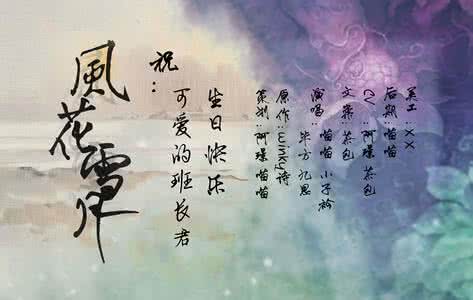 風花雪月
祝：
可爱的班长君
生日快乐
策划：阿璞喵喵
原作：winky诗
演唱：喵喵 小子衿
毕方 九思
文案：茶包
CV：阿璞 茶包
后期：喵喵
美工：XX